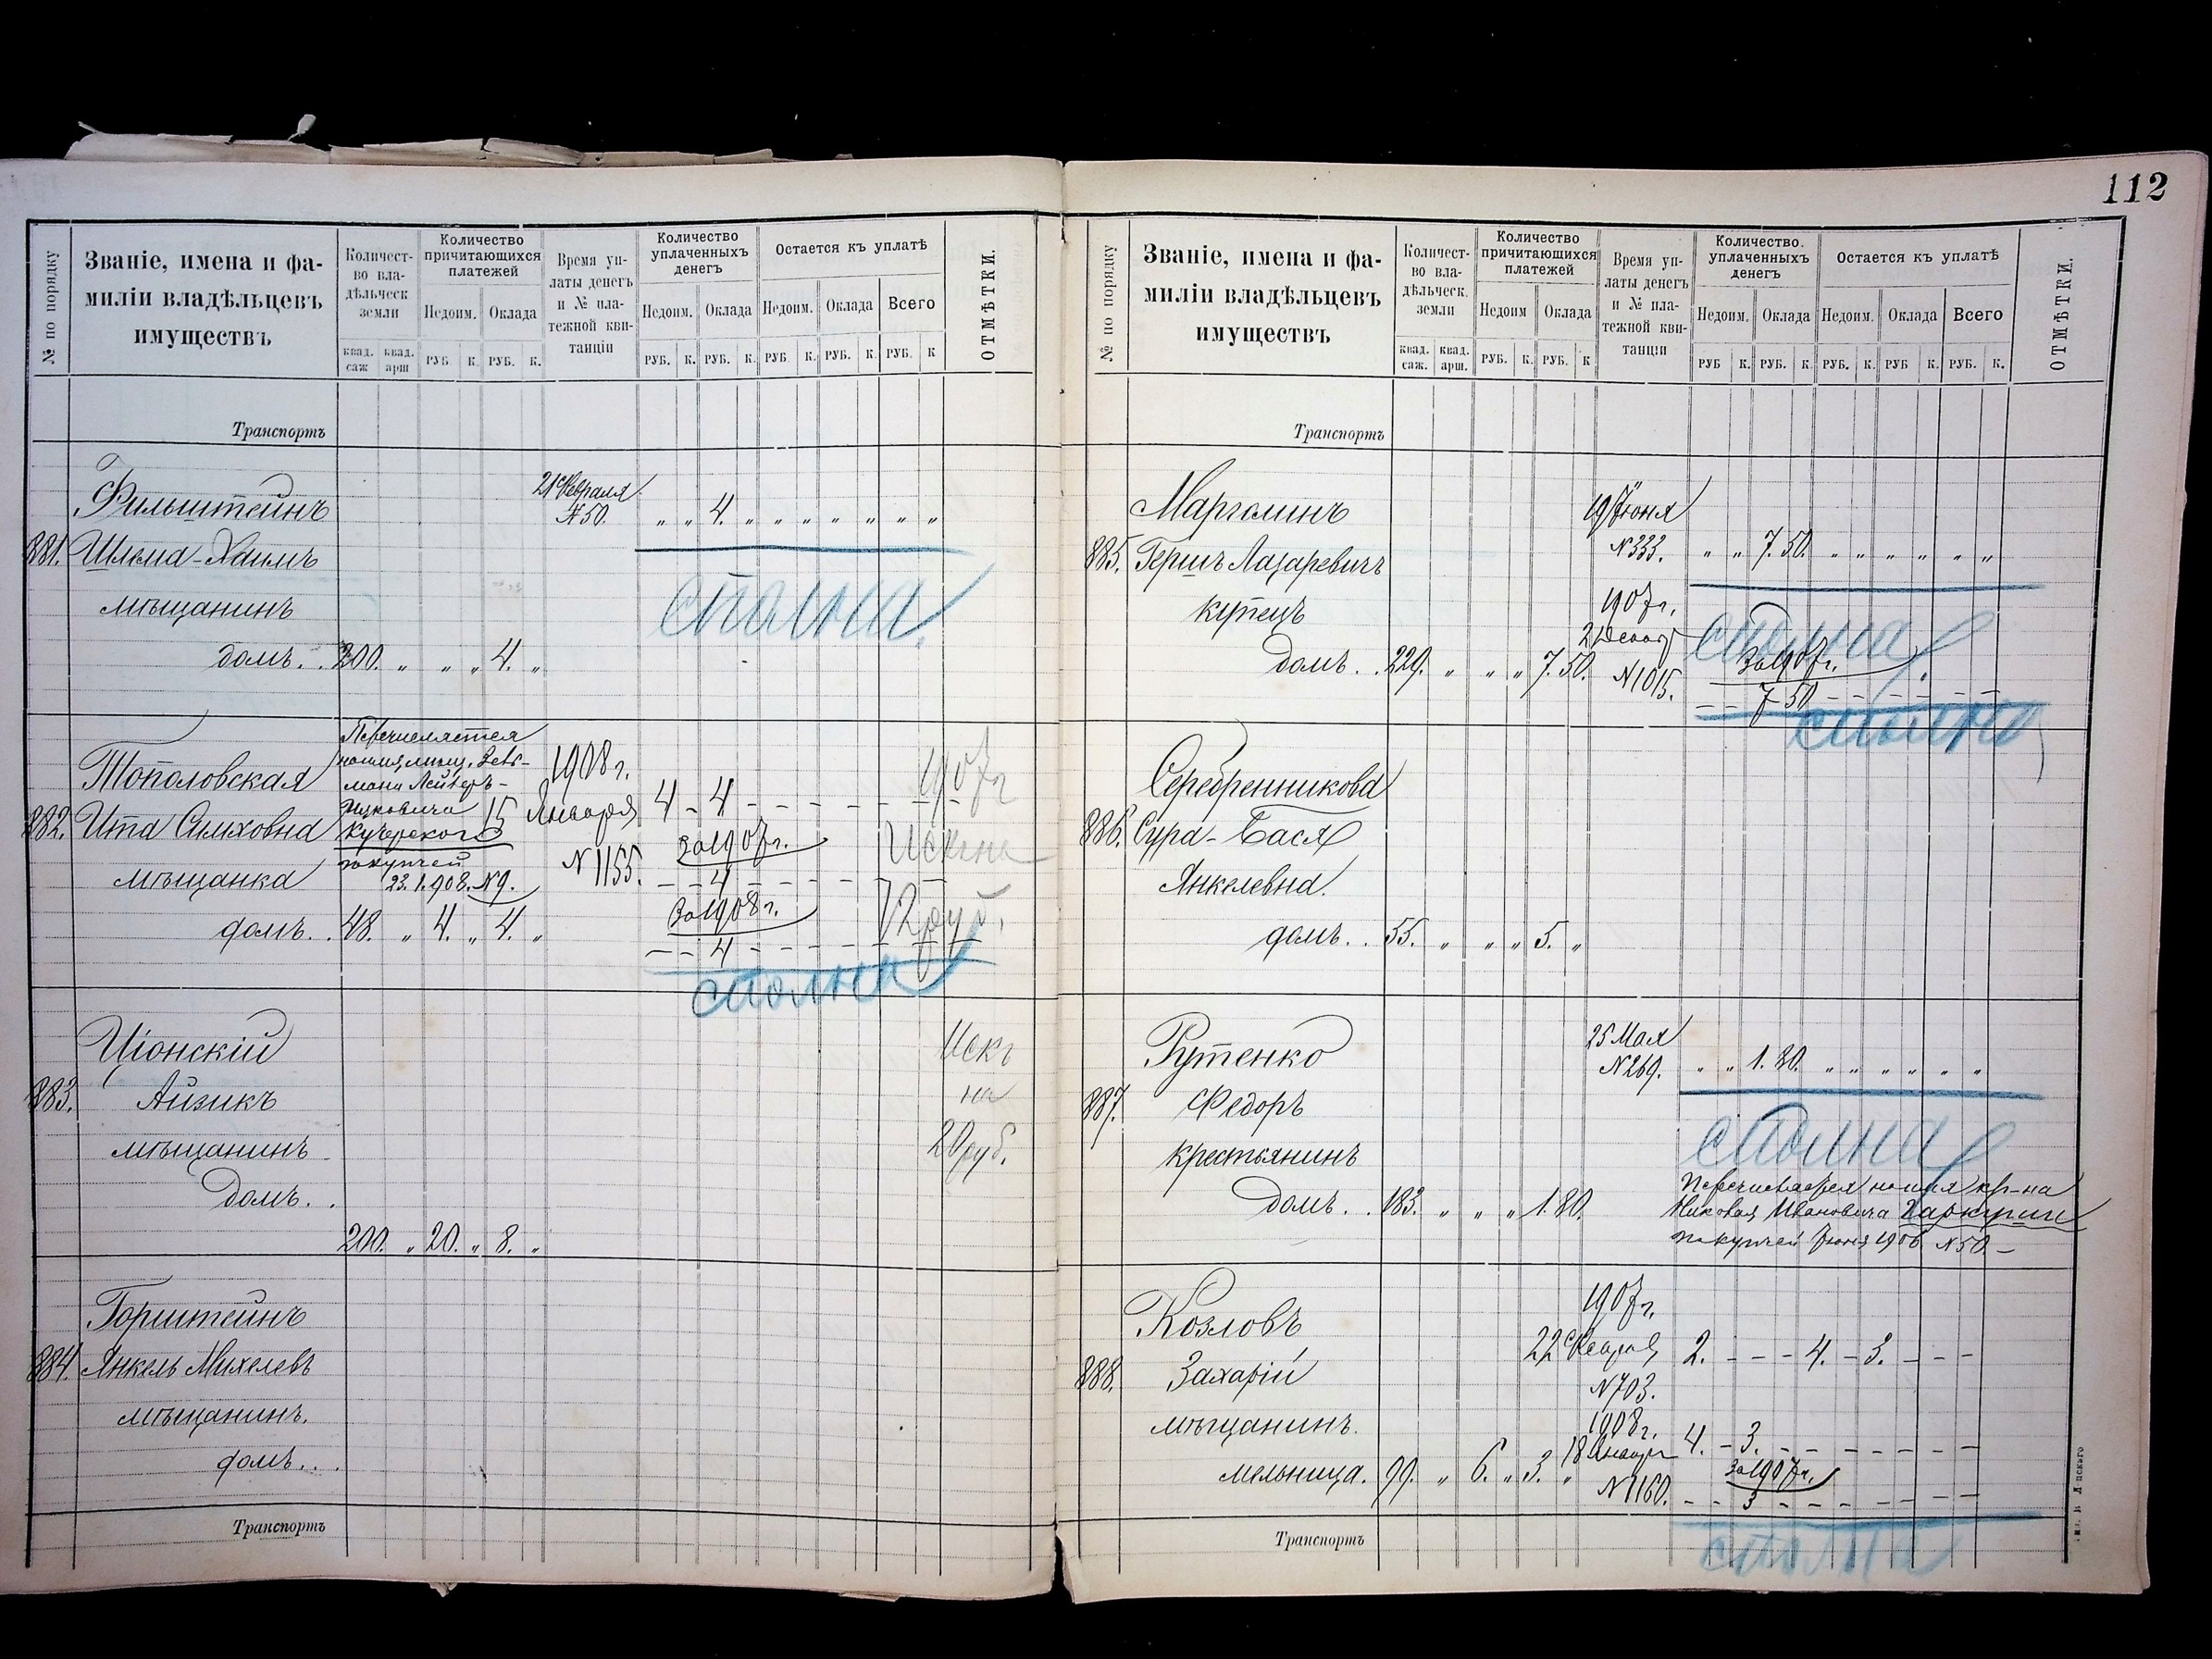 112
№ по порядку
Званіе, имена и фа-
миліи владѣльцевъ
имуществъ
Количест-
во вла-
дѣльческ
земли
квад.
саж
квад.
арш
Количество
причитающихся
платежей
Недоим. Оклада
РУБ. К. РУБ. К.
Время уп-
латы денегъ
и № пла-
тежной кви-
танціи
Количество
уплаченныхъ
денегъ
Недоим. Оклада
РУБ. К. РУБ. К.
Остается къ уплатѣ
Недоим. Оклада Всего
РУБ. К. РУБ. К. РУБ. К
ОТМѢТКИ.
Транспортъ
Фильштейнъ
881. Шлема-Хаимъ
мѣщанинъ
домъ. . 200. „ „ „ 4. „
21 Февраля
№ 50. „ „ 4. „ „ „ „ „ „ „
сполна.
Тополовская
882. Ита Симховна
мѣщанка
домъ. . 48. „ 4. „ 4. „
Перечисляется
на имя мѣщ.
Кучерского
по купчей
23.1.908. №9.
1908 г.
15 Января
№ 1155.
4 - 4 - - - - - - -
За 1907 г.
- - 4 - - - - - - -
За 1908 г.
- - 4 - - - - - - -
сполна
1907 г
Искъ на
12 руб.
Ціонскій
883. Айзикъ
мѣщанинъ
Домъ. .
200. „ 20. „ 8. „
Искъ
на
20 руб.
Горштейнъ
884. Янкель Михелевъ
мѣщанинъ.
домъ. . .
Транспортъ
№ по порядку
Званіе, имена и фа-
миліи владѣльцевъ
имуществъ
Количест-
во вла-
дѣльческ.
земли
квад.
саж.
квад.
арш.
Количество
причитающихся
платежей
Недоим Оклада
РУБ. К. РУБ. К
Время уп-
латы денегъ
и № пла-
тежной кви-
танціи
Количество.
уплаченныхъ
денегъ
Недоим. Оклада
РУБ К. РУБ. К
Остается къ уплатѣ
Недоим. Оклада Всего
РУБ. К. РУБ К. РУБ. К.
ОТМѢТКИ.
Транспортъ
Марголинъ
885. Гершъ Лазаревичъ
купецъ
домъ . . 229. „ „ „ 7. 50.
19 Іюня
№ 333. „ „ 7. 50. „ „ „ „ „ „
сполна
1907 г.
№ 1015.
За 1907 г.
- - 7 50 - - - - - -
сполна
Серебренникова
886. Сура-Бася
Янкелевна.
домъ. . 55. „ „ „ 5. „
Рутенко
887. Федоръ
крестьянинъ
домъ. . 183. „ „ „ 1. 80.
25 Мая
№ 269. „ „ 1. 80. „ „ „ „ „ „
сполна
Перечисляется на имя кр-на
Николая Ивановича
по купчей Іюня 1906 №50. -
Козловъ
888. Захарій
мѣщанинъ.
мельница. 99. „ 6. „ 3. „
1907 г.
22 Февраля
№ 703.
2. - - - 4. - 3. - - -
1908 г.
18 Января
№ 1160.
4. - 3. - - - - - - -
За 1907 г.
- - 3 - - - - - - -
сполна
Транспортъ